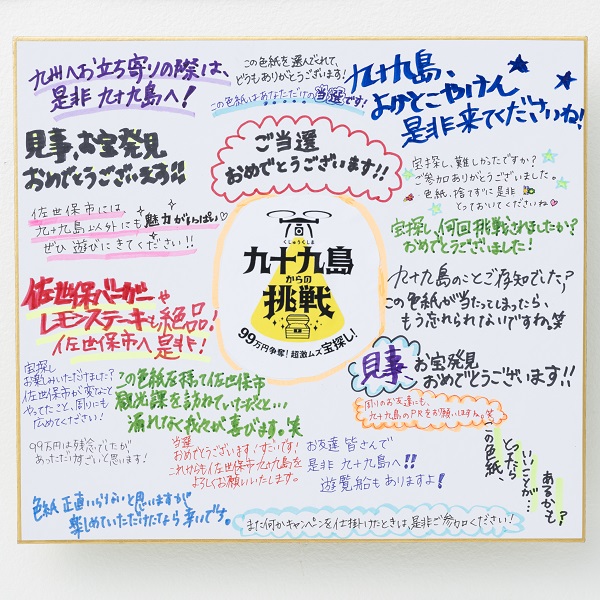 九州へお立ち寄りの際は、
是非 九十九島へ!
この色紙を選んでくれて、
どうもありがとうございます!
この色紙はあなただけの当選です!
九十九島、
よかとこやけん
是非来てくださいね!
見事、お宝発見
おめでとうございます!!
ご当選
おめでとうございます!!
宝探し、難しかったですか?
ご参加ありがとうございます。
色紙、捨てずに是非
とっておいてくださいね
佐世保市には
九十九島以外にも魅力がいっぱい♡
ぜひ遊びにきてください!!
宝探し、何回挑戦されましたか?
おめでとうございました!
くじゅうくしま
九十九島
からの
挑戦
99万円争奪!超激ムズ宝探し!
九十九島のことご存知でした?
この色紙が当たってしまったら、
もう忘れられないですね。笑
佐世保バーガーや
レモンステーキも絶品!
佐世保市へ是非!
見事 お宝発見
おめでとうございます!!
宝探し
お楽しみいただけました?
佐世保市が変なこと
やってたこと、周りにも
広めてください!
この色紙を持って佐世保市
観光課を訪ねていただくと…
潤れてく我々が喜びます。笑
周りのお友達にも、
九十九島のPRをお願いしますね。笑
この色紙、
とってたら
いいことが…
あるかも?
99万円は残念でしたが
あっただけすごいと思います!
当選
おめでとうございます!すごいです!
これからも佐世保市九十九島を
よろしくお願いいたします。
お友達 皆さんで
是非 九十九島へ!!
遊覧船もありますよ!
色紙 正直いらないと思いますが
楽しめていただけたなら幸いです。
また何かキャンペーンを仕掛けたときは、是非ご参加ください!